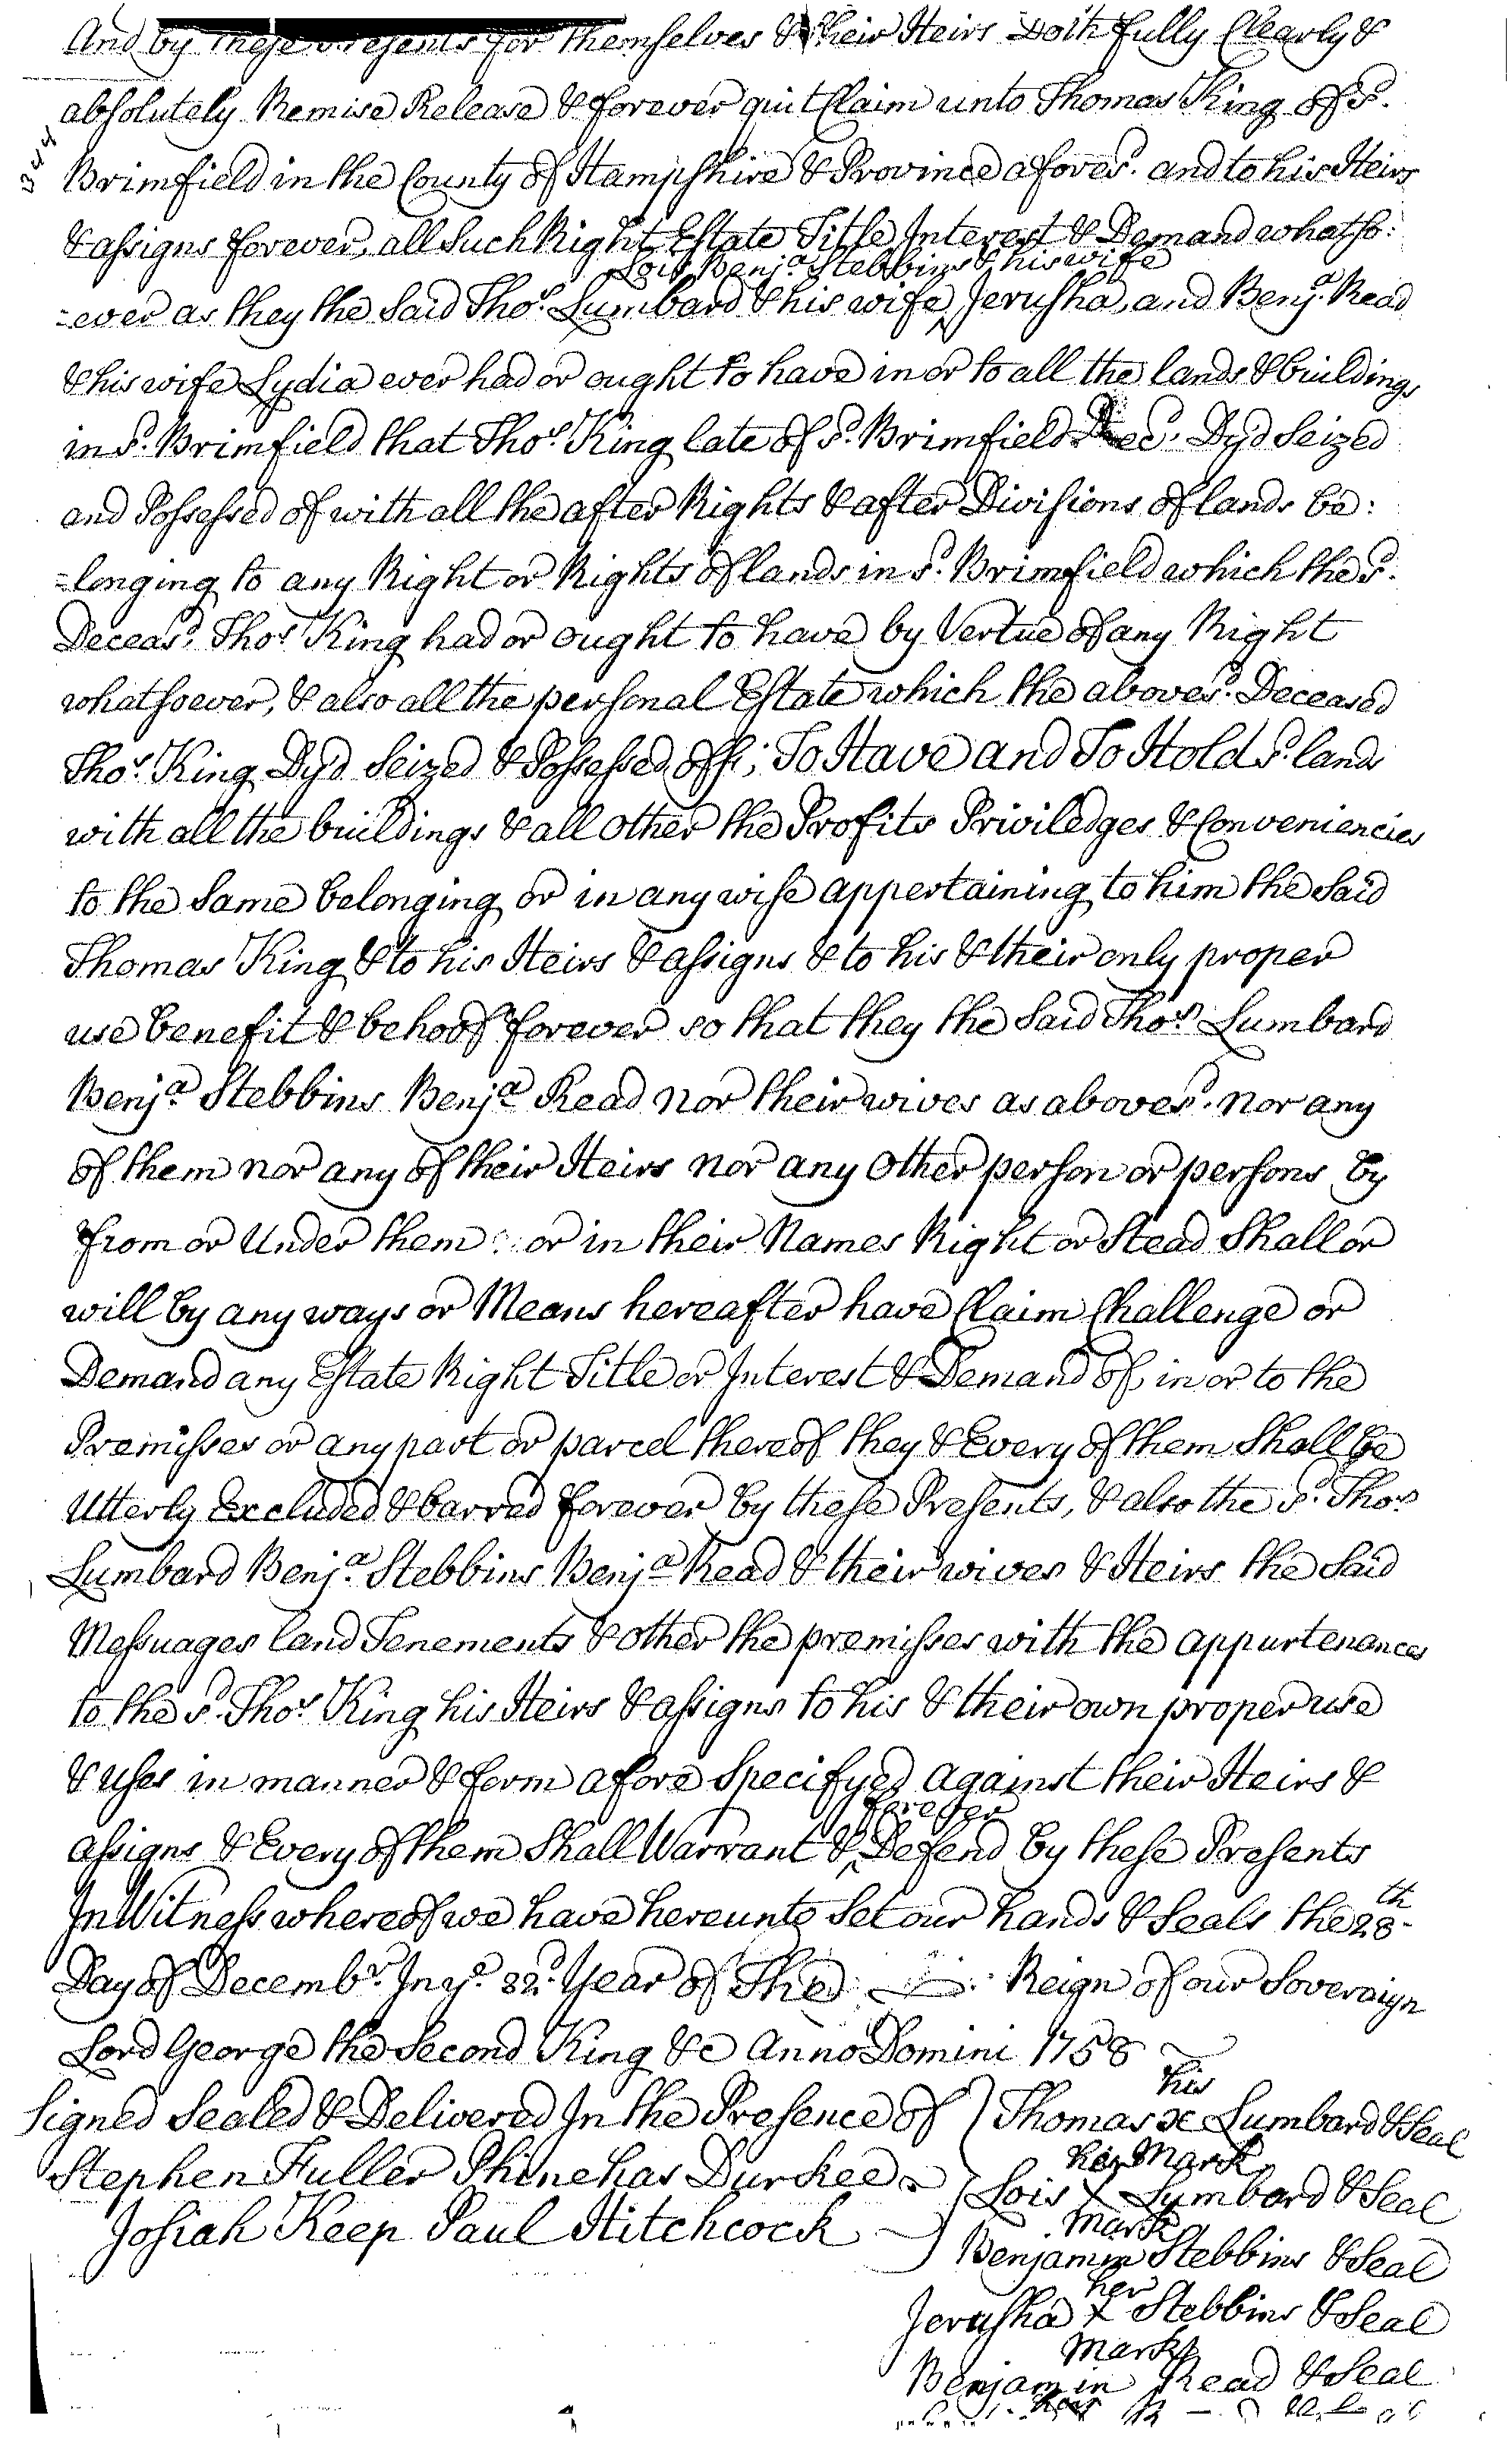 And by these Presents for themselves & their Heirs Doth fully Clearly &
absolutely Remise Release & forever quit Claim unto Thomas King of sd.
Brimfield in the County of Hampshire & Province aforesd. and to his Heirs
& assigns forever, all such Right Estate Title Interest & Demand whatso:
Lois, Benja. Stebbins & his wife
-ever as they the said Thos. Lumbard & his wife ‸ Jerusha, and Benja. Read
& his wife Lydia ever had or ought to have in or to all the lands & buildings
in sd. Brimfield that Thos. King late of sd. Brimfield Decd. Dyd Seized
and Possessed of with all the after Rights & after Divisions of lands be:
-longing to any Right or Rights of lands in sd. Brimfield which the sd.
Deceasd. Thos. King had or ought to have by Vertue of any Right
whatsoever, & also all the personal Estate which the abovesd. Deceased
Thos. King Dyd Seized & Possessed off; To Have and To Hold sd. land
with all the buildings & all other the Profits Priviledges & Conveniencies
to the same belonging or in any wise appertaining to him the said
Thomas King & to his Heirs & assigns & to his & their only proper
use benefit & behoof forever so that they the said Thos. Lumbard
Benja. Stebbins Benja. Read nor their wives as abovesd. nor any
of them nor any of their Heirs nor any other person or persons by
from or Under them or in their Names Right or Stead Shall or
will by any ways or Means hereafter have Claim Challenge or
Demand any Estate Right Title or Interest & Demand of in or to the
Premisses or any part or parcel thereof they & Every of them Shall be
Utterly Excluded & barred forever by these Presents, & also the sd. Thos.
Lumbard Benja. Stebbins Benja. Read & their wives & Heirs the said
Messuages land Tenements & other the premisses with the appurtenances
to the sd. Thos. King his Heirs & assigns to his & their own proper use
& uses in manner & form afore Specifyed against their Heirs &
forever
assigns & Every of them Shall Warrant & ‸ Defend by these Presents
In Witness whereof we have hereunto Set our hands & Seals the 28th
Day of Decembr. In ye. 32d. Year of The Reign of our Soveraign
Lord George the Second King &c Anno Domini 1758
Signed Sealed & Delivered In the Presence of
Stephen Fuller Phinehas Durkee
Josiah Keep Paul Hitchcock
his
Thomas x Lumbard & Seal
her Mark
Lois x Lumbard & Seal
Mark
Benjamin Stebbins & Seal
her
Jerusha x Stebbins & Seal
Mark
Benjamin Read & Seal
her